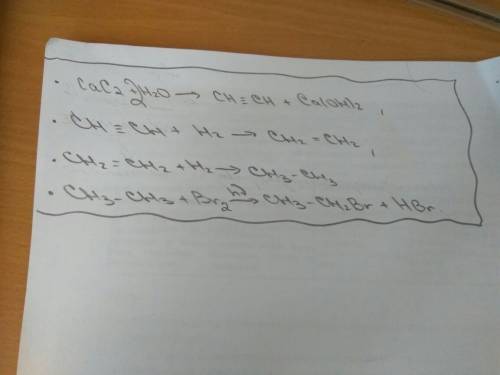 · CaC2 + 2H2O → CH ≡ CH + Ca(OH)2,
· CH ≡ CH + H2 → CH2 = CH2,
· CH2 = CH2 + H2 → CH3 - CH3
· CH3 - CH3 + Br2 hν→ CH3 - CH2Br + HBr